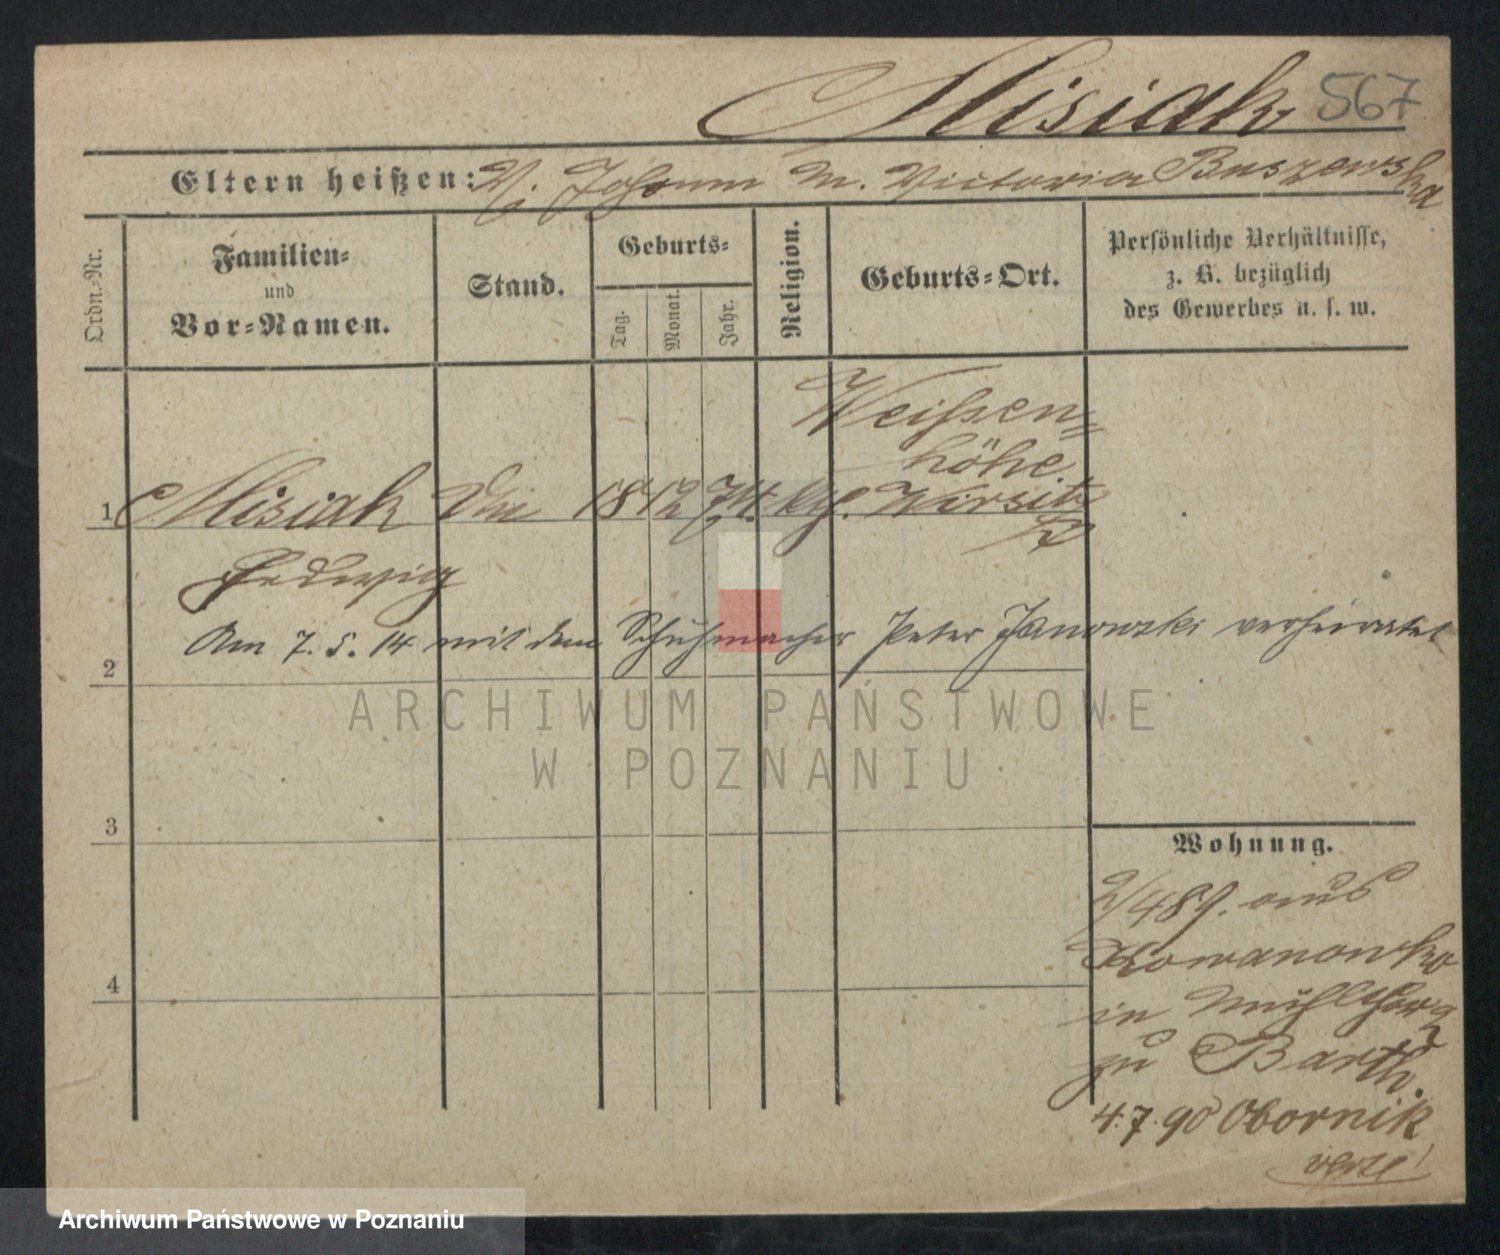 Misiak 567
Eltern heißen: V. Johann M. Victoria Buszewska
Ordn.-Nr.
Familien-
und
Vor-Namen.
Stand.
Geburts-
Tag.
Monat.
Jahr.
Religion.
Geburts-Ort.
Persönliche Verhältnisse,
z. B. bezüglich
des Gewerbes u. s. w.
Weißen-
höhe
1 Misiak 18 12 74. kth. Wirsitz
Hedwig
Am 7. 5. 14 mit dem Schuhmacher Peter Janowski verheiratet
2
3
4
Wohnung.
2/4 89. aus
Kowanowko
in Mühlthor 9
zu Barth.
4.7.90 Obornik
verte!
ARCHIWUM PAŃSTWOWE
W POZNANIU
Archiwum Państwowe w Poznaniu